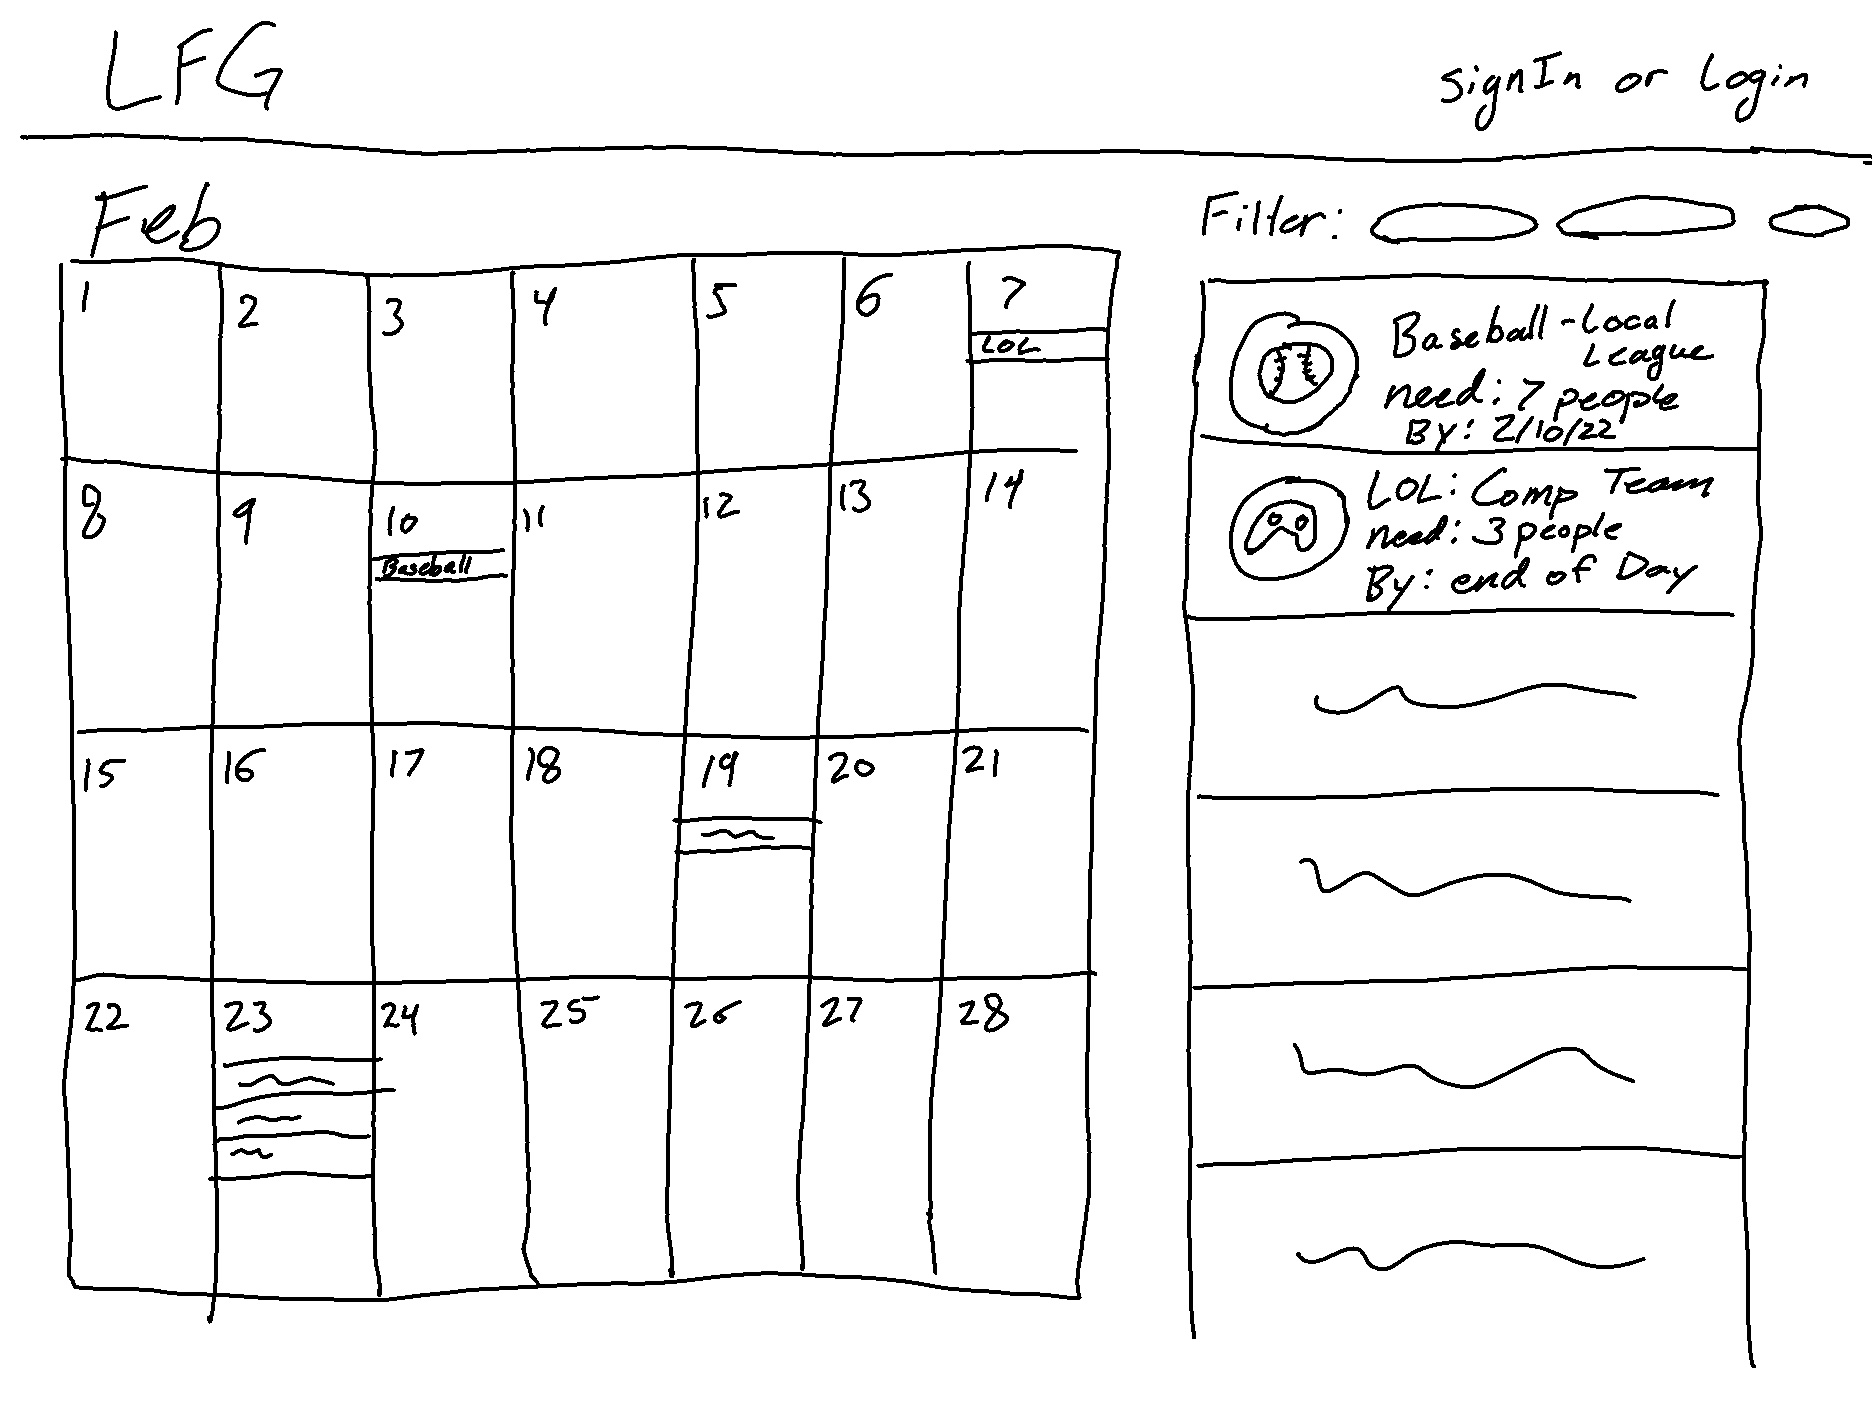 LFG
signIn or Login
Feb
1 2 3 4 5 6 7
LOL
8 9 10 11 12 13 14
Baseball
15 16 17 18 19 20 21
22 23 24 25 26 27 28
Filter:
Baseball - Local
League
need: 7 people
By: 2/10/22
LOL: Comp Team
need: 3 people
By: end of Day